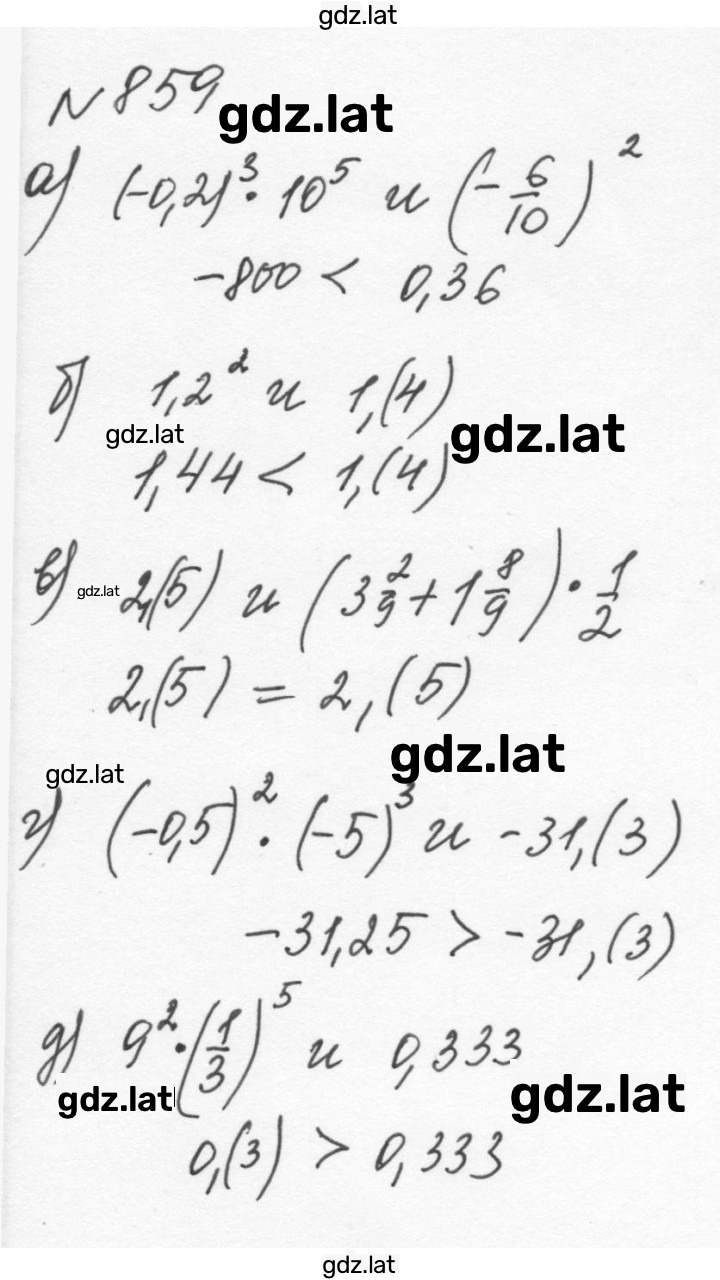 gdz.lat
№ 859
gdz.lat
а) (-0,2)³ · 10⁵ и (-6/10)²
-800 < 0,36
б) 1,2² и 1,(4)
gdz.lat
gdz.lat
1,44 < 1,(4)
в) gdz.lat 2,(5) и (3 2/9 + 1 8/9) · 1/2
2,(5) = 2,(5)
gdz.lat
gdz.lat
г) (-0,5)² · (-5)³ и -31,(3)
-31,25 > -31,(3)
д) 9² · (1/3)⁵ и 0,333
gdz.lat
gdz.lat
0,(3) > 0,333
gdz.lat